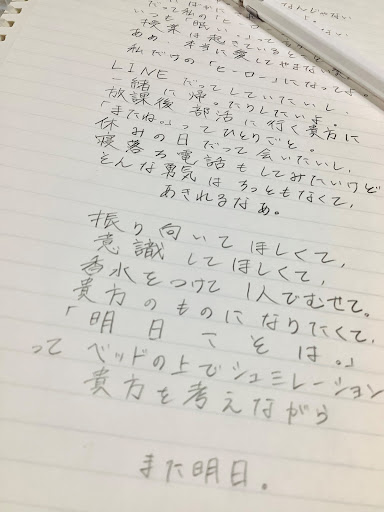 だって私の「ヒー
いつも「眠い。」って
授業は起きていると
ああ、本当に愛してやまない
私だけの「ヒーロー」になってよ。
LINEだってしていたいし、
一緒に帰ったりしたいよ。
放課後 部活に行く貴方に
「またね。」ってひとりごと。
休みの日だって会いたいし、
寝落ち電話もしてみたいけど
そんな勇気はちっともなくて、
あきれるなあ。
振り向いてほしくて、
意識してほしくて、
香水をつけて1人でむせて。
貴方のものになりたくて、
「明日こそは。」
ってベッドの上でシュミレーション
貴方を考えながら
また明日。